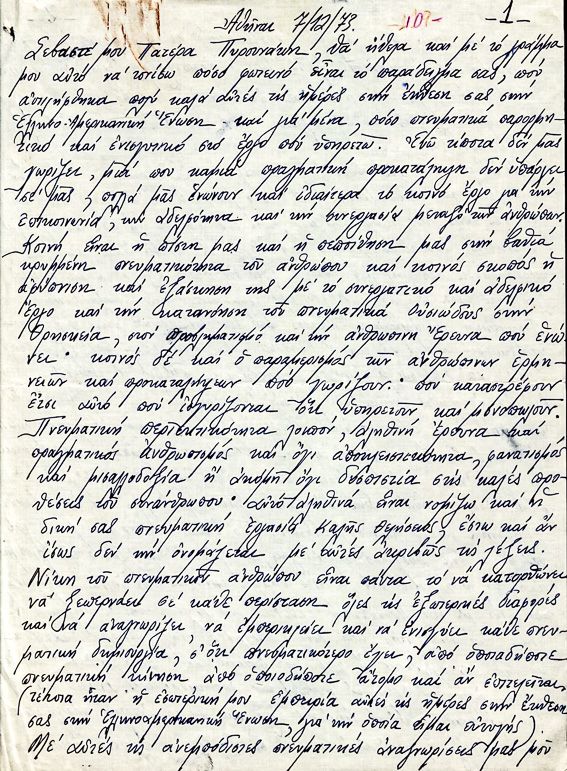 Ἀθῆναι 7/12/73. -10?- -1-
Σεβαστέ μου Πατέρα Πυρουνάκη, θά ἤθελα καί μέ τό γράμμα
μου αὐτό νά τονίσω πόσο φωτεινό εἶναι τό παράδειγμα σας, πού
ἀντιλήφθηκα πολύ καλά αὐτές τίς ἡμέρες στήν ἔκθεση σας στήν
Ἑλληνο-Αμερικανική Ἕνωση καί γιά μένα, πόσο πνευματικά παρορμη-
τικό καί ἐνισχυτικό στό ἔργο πού ὑπηρετῶ. Ἐνῶ τίποτα δέν μᾶς
χωρίζει, μιά που καμιά πραγματική προκατάληψη δέν ὑπάρχει
σέ μᾶς, πολλά μᾶς ἑνώνουν καί ἰδιαίτερα τό κοινό ἔργο γιά τήν
ἐπικοινωνία, τήν ἀδελφότητα καί τήν συνεργασία μεταξύ τῶν ἀνθρώπων.
Κοινή εἶναι ἡ πίστη μας καί ἡ πεποίθηση μας στήν βαθειά
κρυμμένη πνευματικότητα τοῦ ἀνθρώπου καί κοινός σκοπός ἡ
ἀφύπνιση καί ἐξάσκηση της μέ τό συνεργατικό καί ἀδελφικό
ἔργο καί τήν κατανόηση τοῦ πνευματικά οὐσιώδους στήν
θρησκεία, στόν προβληματισμό καί τήν ἀνθρώπινη ἔρευνα πού ἑνώ-
νει· κοινός δέ καί ὁ παραμερισμός τῶν ἀνθρώπινων ἑρμη-
νειῶν καί προκαταλήψεων πού χωρίζουν· πού καταστρέφουν
ἔτσι αὐτό πού ἰσχυρίζονται ὅτι ὑπηρετοῦν καί μονοπωλοῦν.
Πνευματική περιεκτικότητα λοιπόν, ἀληθινή ἔρευνα καί
πραγματικός ἀνθρωπισμός καί ὄχι ἀποκλειστικότητα, φανατισμός
καί μισαλλοδοξία ἤ ἀκόμη ὄχι δυσπιστία στίς καλές προ-
θέσεις τοῦ συνανθρώπου. αὐτό ἀληθινά εἶναι νομίζω καί ἡ
δική σας πνευματική ἐργασία καλῆς θελήσεως, ἔστω καί ἄν
ἴσως δέν τήν ὀνομάζεται μέ αὐτές ἀκριβῶς τίς λέξεις.
Νίκη τοῦ πνευματικοῦ ἀνθρώπου εἶναι πάντα τό νά κατορθώνει
νά ξεπερνάει σέ κάθε περίσταση ὅλες τίς ἐξωτερικές διαφορές
καί νά ἀναγνωρίζει, νά ἐμπερικλείει καί νά ἐνισχύει κάθε πνευ-
ματική δημιουργία, ὅτι πνευματικότερο ἔχει, ἀπό ὁποιαδήποτε
πνευματική κίνηση ἀπό ὁποιοδήποτε ἄτομο καί ἄν ἐπιτελεῖται,
(τέτοια ἦταν ἡ ἐσωτερική μου ἐμπειρία αὐτές τίς ἡμέρες στήν ἔκθεση
σας στήν Ἑλληνοαμερικανική Ἕνωση, γιά τήν ὁποία εἶμαι εὐτυχής).
Μέ αὐτές τίς ἀνεμπόδιστες πνευματικές ἀναγνωρίσεις μας μοῦ